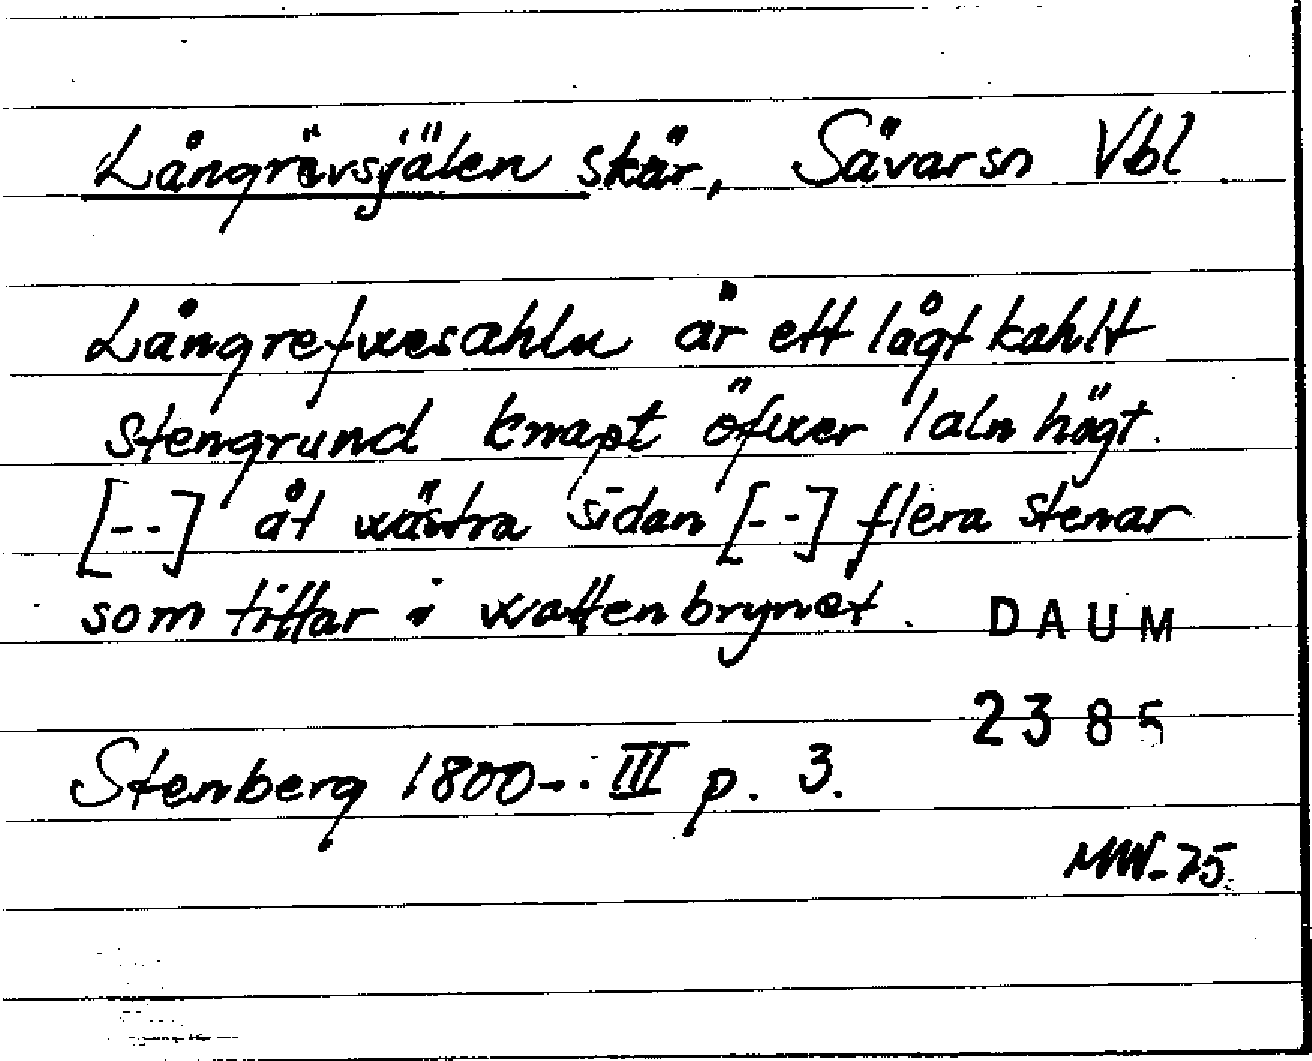 Långrävsjälen skär, Sävarsn Vbl
Långrefwesahln är ett lågt kahlt
stengrund knapt öfwer 1aln högt.
[--] åt wästra sidan [--] flera stenar
som tittar i wattenbrynet.
DAUM
2385
Stenberg 1800-. III p. 3.
MW-75